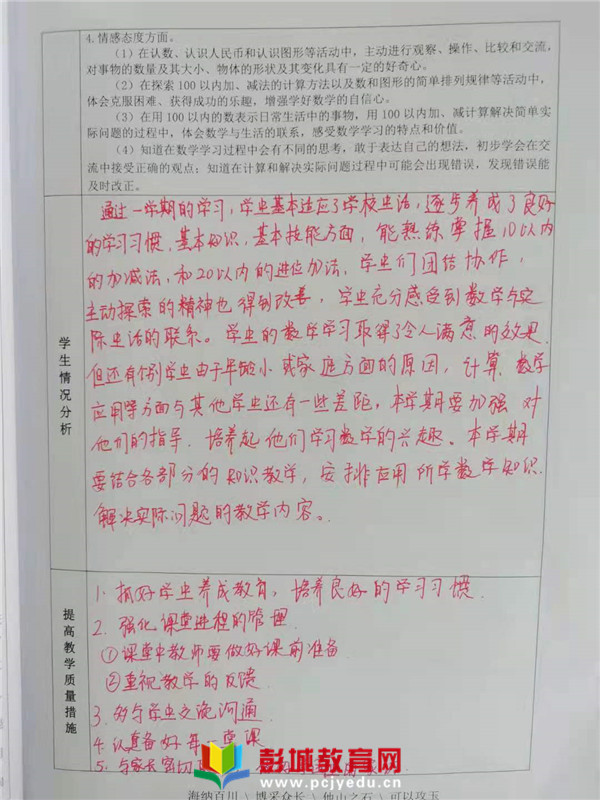 4.情感态度方面。
（1）在认数、认识人民币和认识图形等活动中，主动进行观察、操作、比较和交流，
对事物的数量及其大小、物体的形状及其变化具有一定的好奇心。
（2）在探索 100 以内加、减法的计算方法以及数和图形的简单排列规律等活动中，
体会克服困难、获得成功的乐趣，增强学好数学的自信心。
（3）在用 100 以内的数表示日常生活中的事物，用 100 以内加、减计算解决简单实
际问题的过程中，体会数学与生活的联系，感受数学学习的特点和价值。
（4）知道在数学学习过程中会有不同的思考，敢于表达自己的想法，初步学会在交
流中接受正确的观点；知道在计算和解决实际问题过程中可能会出现错误，发现错误能
及时改正。
学生情况分析
通过一学期的学习，学生基本适应了学校生活，逐步养成了良好
的学习习惯，基本知识，基本技能方面，能熟练掌握10以内
的加减法，和20以内的进位加法，学生们团结协作，
主动探索的精神也得到改善，学生充分感受到数学与实
际生活的联系。学生的数学学习取得了令人满意的效果
但还有个别学生由于年龄小或家庭方面的原因，计算、数学
应用等方面与其他学生还有一些差距，本学期要加强对
他们的指导，培养起他们学习数学的兴趣、本学期
要结合各部分的知识教学，安排应用所学数学知识
解决实际问题的教学内容。
提高教学质量措施
1. 抓好学生养成教育，培养良好的学习习惯.
2. 强化课堂进程的管理
①课堂中教师要做好课前准备
②重视教学的反馈
3. 多与学生交流沟通
4. 认真备好每一堂课
5. 与家长密切
彭城教育网
www.pcjyedu.com
海纳百川 \ 博采众长 \ 他山之石 \ 可以攻玉